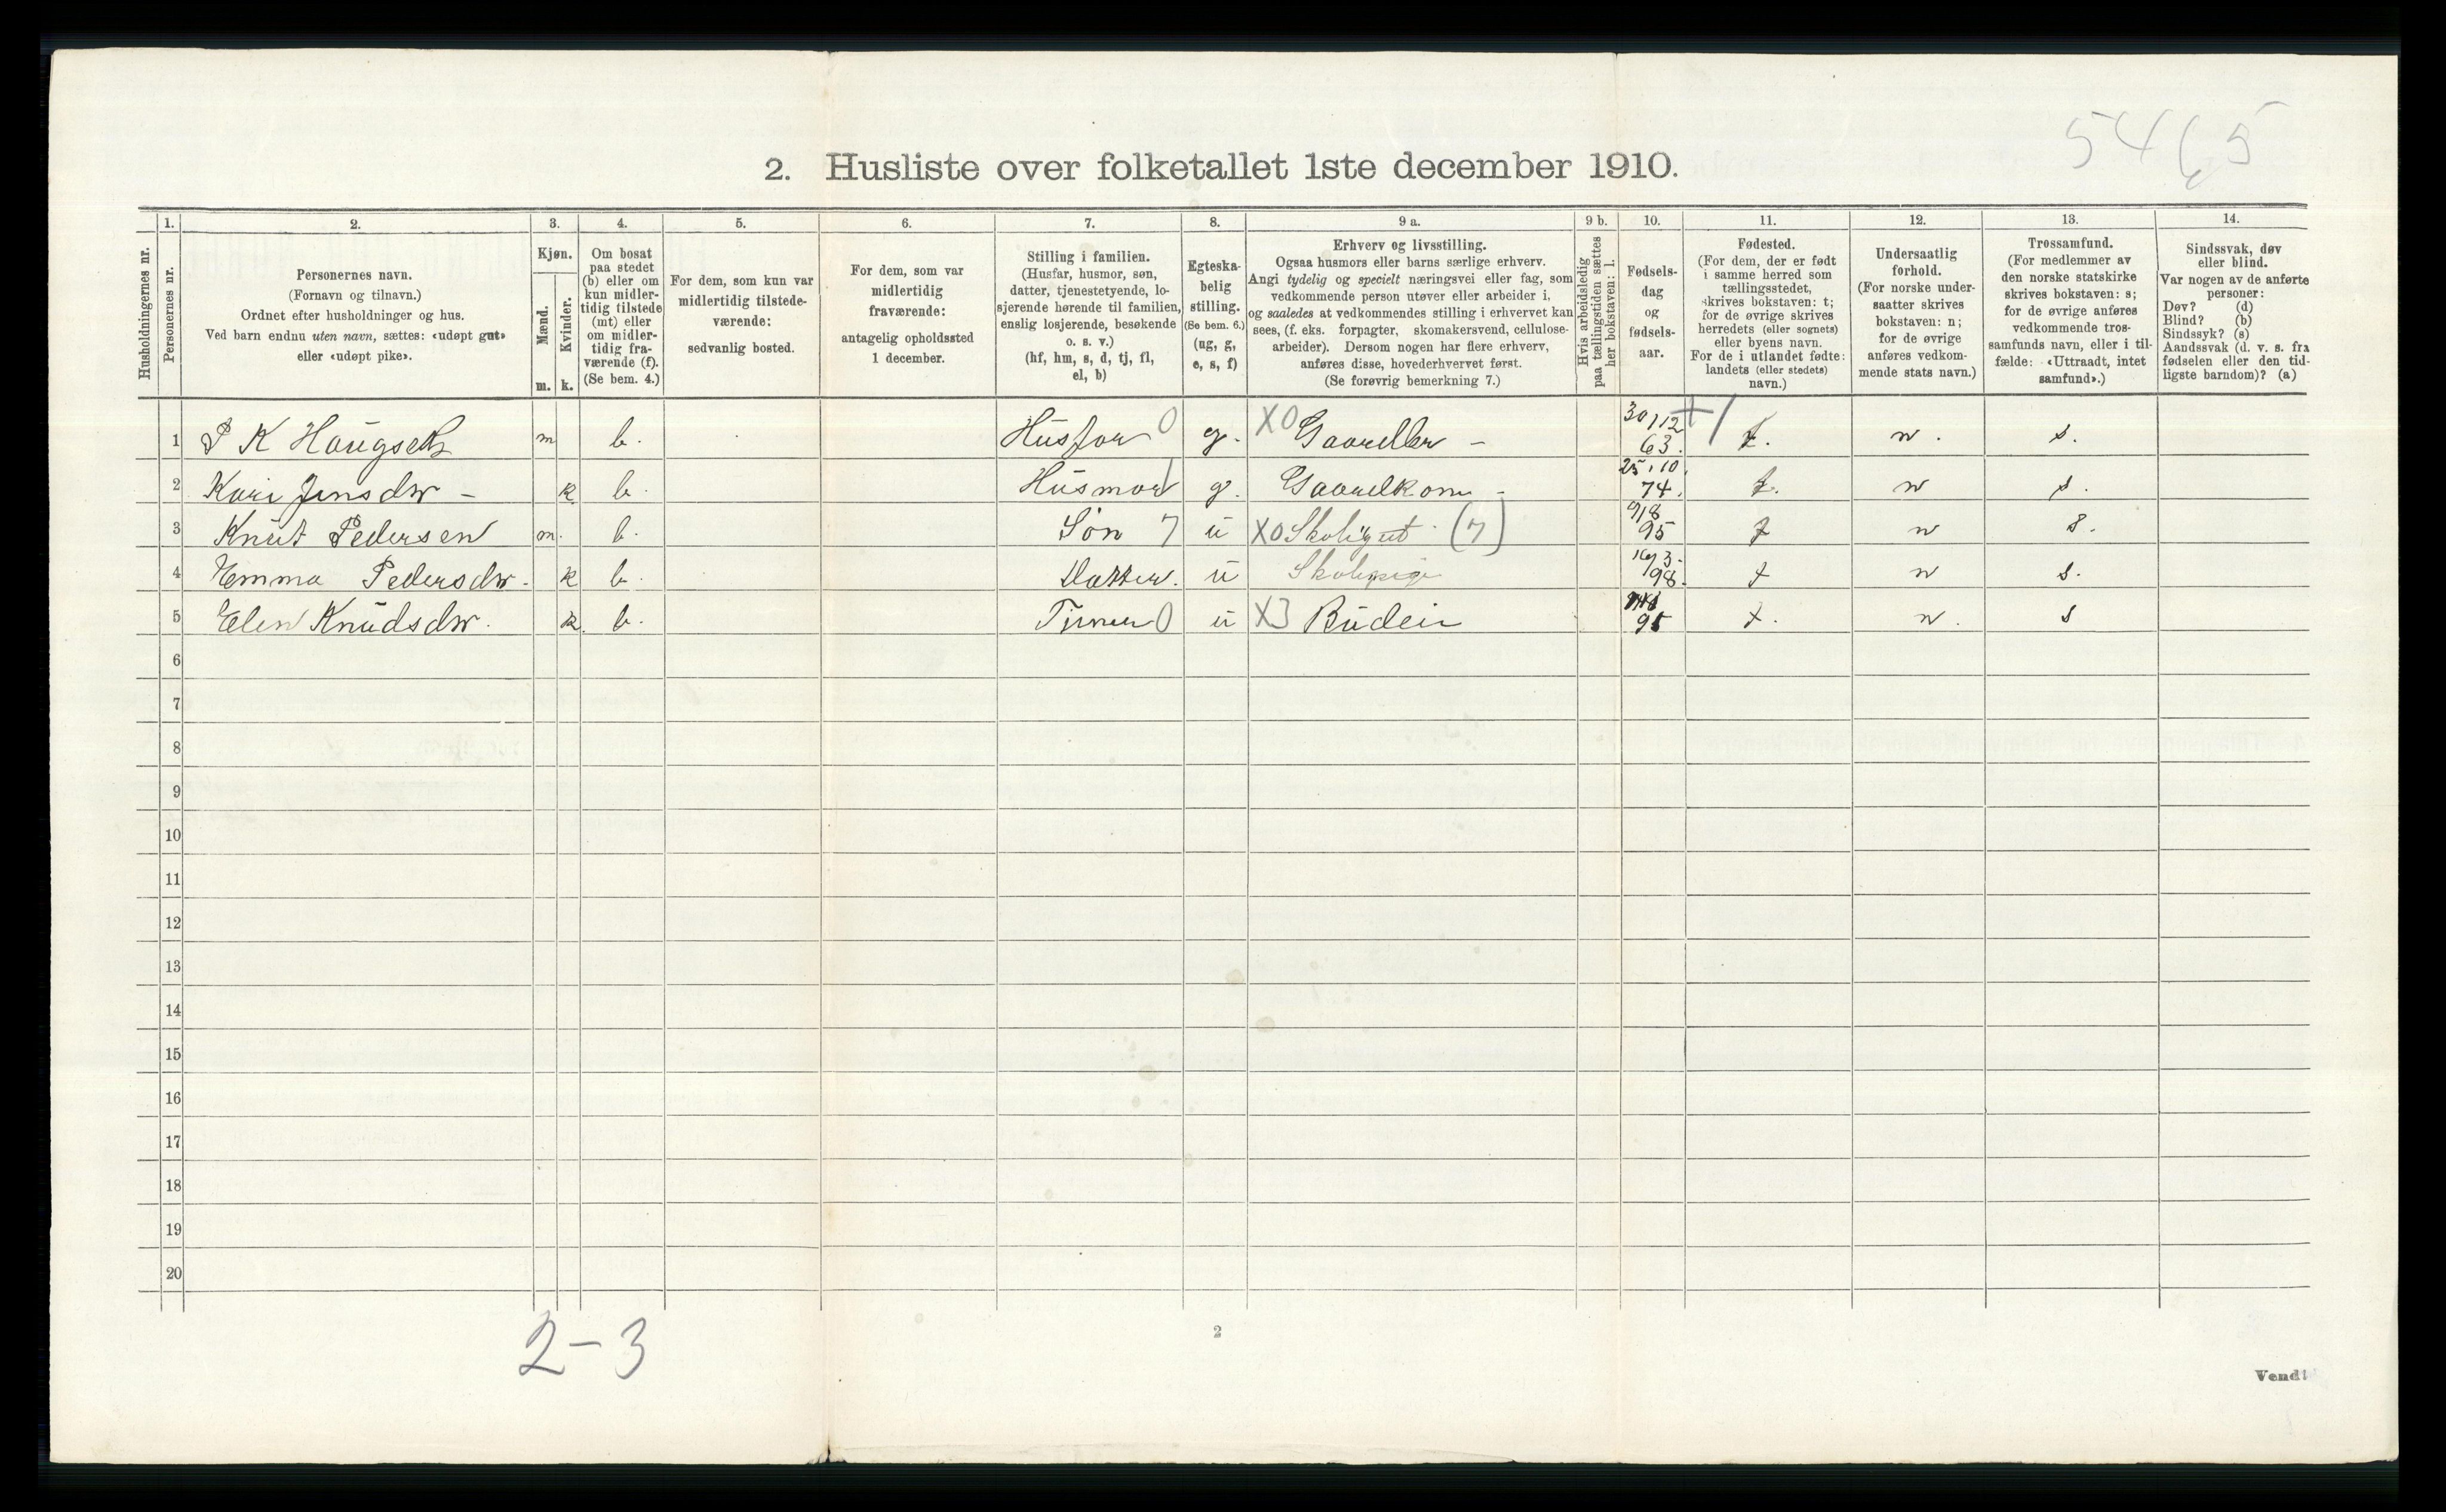 5465
2. Husliste over folketallet 1ste december 1910.
Husholdningernes nr.
1.
Personernes nr.
2.
Personernes navn.
(Fornavn og tilnavn.)
Ordnet efter husholdninger og hus.
Ved barn endnu uten navn, sættes: «udøpt gut»
eller «udøpt pike».
3.
Kjøn.
Mænd.
Kvinder.
m. k.
4.
Om bosat
paa stedet
(b) eller om
kun midler-
tidig tilstede
(mt) eller
om midler-
tidig fra-
værende (f).
(Se bem. 4.)
5.
For dem, som kun var
midlertidig tilstede-
værende:
sedvanlig bosted.
6.
For dem, som var
midlertidig
fraværende:
antagelig opholdssted
1 december.
7.
Stilling i familien.
(Husfar, husmor, søn,
datter, tjenestetyende, lo-
sjerende hørende til familien,
enslig losjerende, besøkende
o. s. v.)
(hf, hm, s, d, tj, fl,
el, b)
8.
Egteska-
belig
stilling.
(Se bem. 6.)
(ug, g,
e, s, f)
9 a.
Erhverv og livsstilling.
Ogsaa husmors eller barns særlige erhverv.
Angi tydelig og specielt næringsvei eller fag, som
vedkommende person utøver eller arbeider i,
og saaledes at vedkommendes stilling i erhvervet kan
sees, (f. eks. forpagter, skomakersvend, cellulose-
arbeider). Dersom nogen har flere erhverv,
anføres disse, hovederhvervet først.
(Se forøvrig bemerkning 7.)
9 b.
Hvis arbeidsledig
paa tællingstiden sættes
her bokstaven: l.
10.
Fødsels-
dag
og
fødsels-
aar.
11.
Fødested.
(For dem, der er født
i samme herred som
tællingsstedet,
skrives bokstaven: t;
for de øvrige skrives
herredets (eller sognets)
eller byens navn.
For de i utlandet fødte:
landets (eller stedets)
navn.)
12.
Undersaatlig
forhold.
(For norske under-
saatter skrives
bokstaven: n;
for de øvrige
anføres vedkom-
mende stats navn.)
13.
Trossamfund.
(For medlemmer av
den norske statskirke
skrives bokstaven: s;
for de øvrige anføres
vedkommende tros-
samfunds navn, eller i til-
fælde: «Uttraadt, intet
samfund».)
14.
Sindssvak, døv
eller blind.
Var nogen av de anførte
personer:
Døv? (d)
Blind? (b)
Sindssyk? (s)
Aandssvak (d. v. s. fra
fødselen eller den tid-
ligste barndom)? (a)
1 P K Haugseth m b. Husfar 0 g. X0 Gaardbr - 30/12 63. +/ t. n. s.
2 Kari Jensdtr - k b. Husmor g. Gaardkone - 25/10. 74. t. n s.
3 Knut Pedersen m. b. Søn 7 u X0 Skolegut (7) 9/8 95 t n s.
4 Emma Pedersdtr. k b. Datter. u Skolepige 16/3. 98. t n s.
5 Elen Knudsdtr. k. b. Tjener 0 u X3 Budeie 95 t. n. s
6
7
8
9
10
11
12
13
14
15
16
17
18
19
20
2-3
2
Vend!